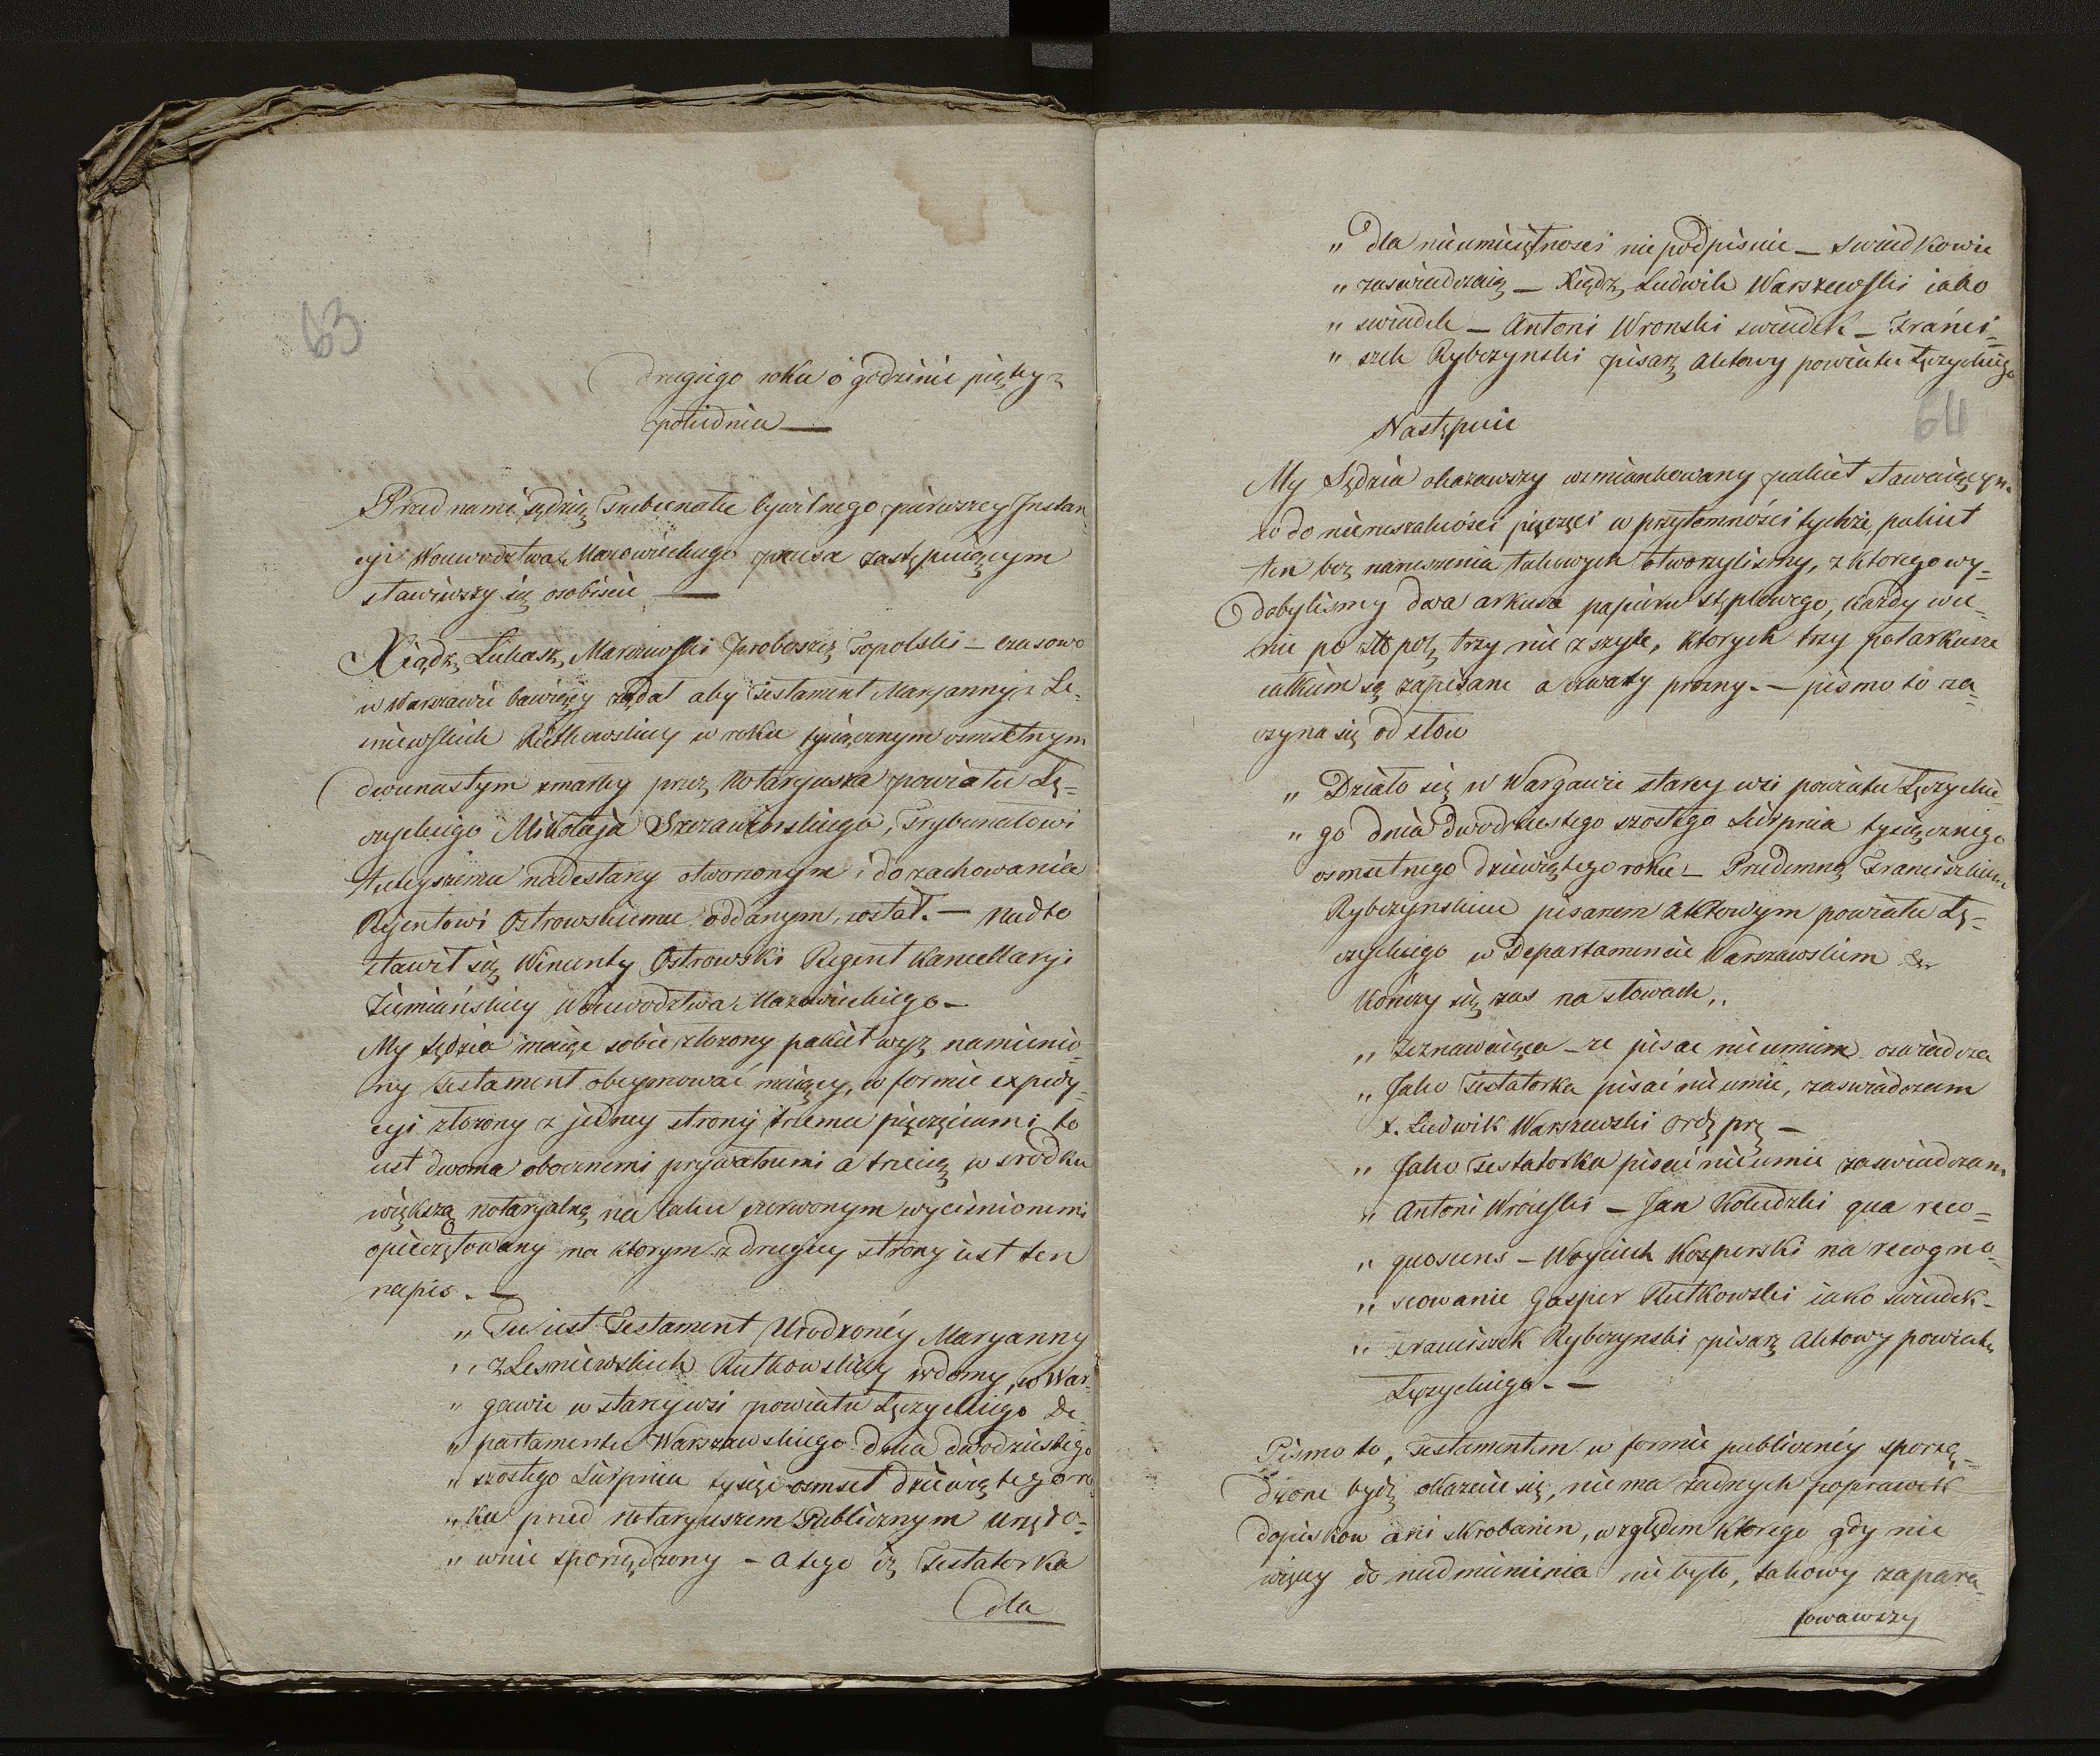 63
drugiego roku o godzinie piątey z
południa —
Przed nami sędzią Trybunału Cywilnego pierwszey Instan
cyi Woiewodztwa Mazowieckiego prezesa zastępuiącym
stawiwszy się osobiscie —
Xiądz Łukasz Marszewski Proboszcz Topolski – czasowo
w Warszawie bawiący żądał aby Testament Maryanny z Le-
sniewskich Rutkowskiey w roku tysiącznym osmsetnym
dwunastym zmarłey przez Notaryusza powiatu Łę-
czyckiego Mikołaja Szczawinskiego, Trybunałowi
tuteyszemu nadesłany otworzonym i do zachowania
Rejentowi Ostrowskiemu oddanym, został. — Nadto
stawił się Wincenty Ostrowski Regent Kancellaryi
Ziemiańskiey Woiewodztwa Mazowieckiego –
My Sędzia maiąc sobie złożony pakiet wyż namienio-
ny Testament obeymować maiący, w formie expedy-
cyi złożony z jedney strony trzema pięczęciami to
iest dwoma obocznemi prywatnemi a trzecią w srodku
większą notaryalną na laku czerwonym wycisnionemi
opieczętowany na ktorym z drugiey strony iest ten
napis. —
„ Tu iest Testament Urodzonéy Maryanny
„ z Lesniewskich Rutkowskiey wdowy, w War-
„ gawie w starey wsi powiatu Łęczyckiego De-
„ partamentu Warszawskiego dnia dwodziestego
„ szostego Sierpnia tysiąc osmset dziewiątego ro
„ ku przed Notaryuszem Publicznym urzędo-
„ wnie sporządzony – a tego iż Testatorka
dla
„ dla nieumieiętnosci niepodpisuie – swiadkowie
„ zaswiadczaią – Xiądz Ludwik Warszewski iako
„ swiadek – Antoni Wronski swiadek – Franci-
„ szek Rybczynski pisarz aktowy powiatu Łęczyckiego
64
Następnie
My Sędzia okazawszy wzmiankowany pakiet stawaiącym
co do nienaruszalności pięczęci w przytomności tychże, pakiet
ten bez naruszenia takowych otworzyliśmy, z ktorego wy-
dobylismy dwa arkusze papieru stęplowego, każdy wce-
nie po złł: poł: trzy nie zszyte, ktorych trzy połarkusze
całkiem są zapisane a czwarty prozny. — pismo to za-
czyna się od słow
„ Działo się w Wargawie starey wsi powiatu Łęczyckie
„ go dnia dwodziestego szostego Sierpnia tysiącznego
osmsetnego dziewiątego roku – Przedemną Franciszkiem
Rybczynskim pisarzem aktowym powiatu Łę-
czyckiego w Departamencie Warszawskim &c
Kończy się zas na słowach„
„ Zeznawaiąca – ze pisac nieumiem oswiadcza
„ Jako Testatorka pisać nieumie, zaswiadczam
X. Ludwik Warszewski Ordż prż –
„ Jako Testatorka pisać nieumie zaswiadczam
„ Antoni Wroński – Jan Kołudzki qua reco-
„ gnoscens – Woyciech Kosperski na recogno-
„ scowanie Gasper Rutkowski iako swiadek –
„ Franciszek Rybczynski pisarz aktowy powiatu
Łęczyckiego. —
Pismo to, Testamentem w formie publicznéy sporzą-
dzone bydź okazuie się, niema żadnych poprawek
dopiskow ani skrobanin, względem ktorego gdy nic
więcey do nadmienienia nie było, takowy zapara-
fowawszy